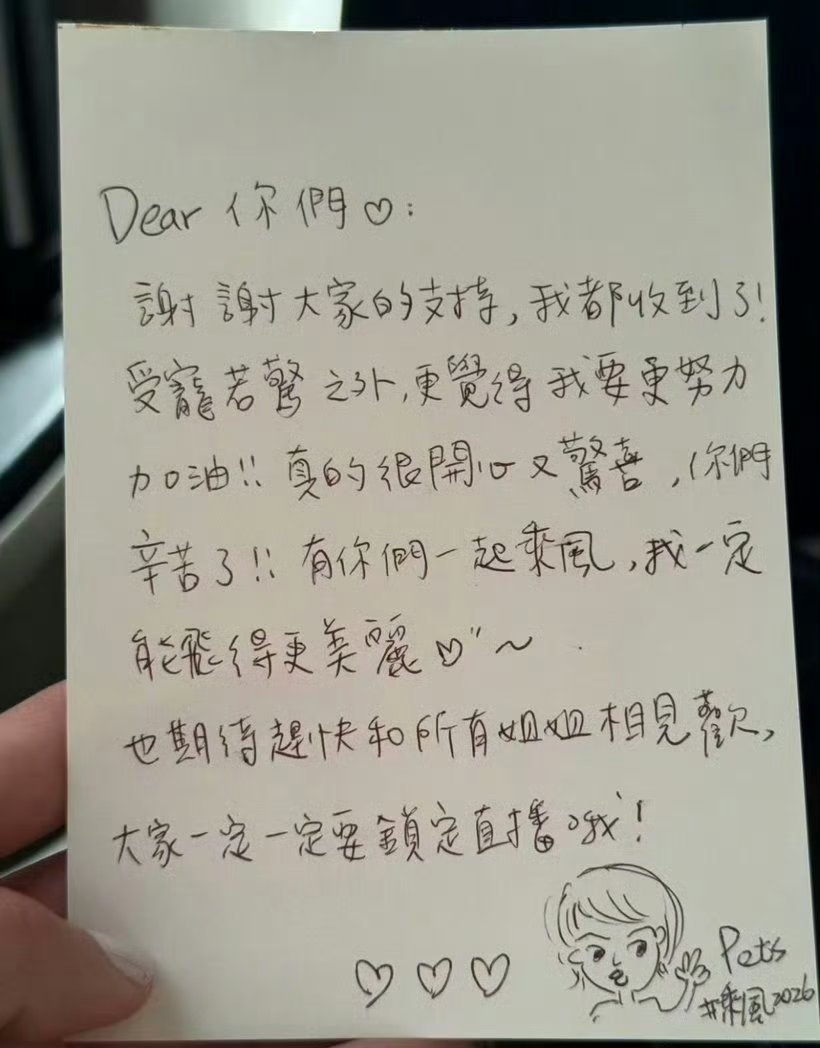 Dear 你們♡：
謝謝大家的支持，我都收到了！
受寵若驚之外，更覺得我要更努力
加油!! 真的很開心又驚喜，你們
辛苦了!! 有你們一起乘風，我一定
能飛得更美麗♡"～
也期待趕快和所有姐姐相見歡，
大家一定一定要鎖定直播哦！
♡♡♡
Pets
#乘風2026